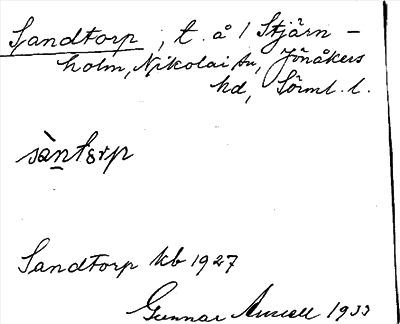 Sandtorp, t. å / Stjärn-
holm, Nikolai sn, Jönåkers
hd, Sörml. l.
sàntɛrp
Sandtorp kb 1927
Gunnar 1933